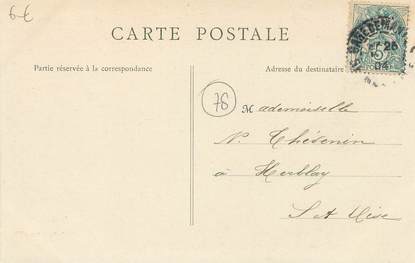 6€
CARTE POSTALE
Partie réservée à la correspondance
Adresse du destinataire
78
Mademoiselle
N. Thévenin
à Herblay
S et Oise
26
04